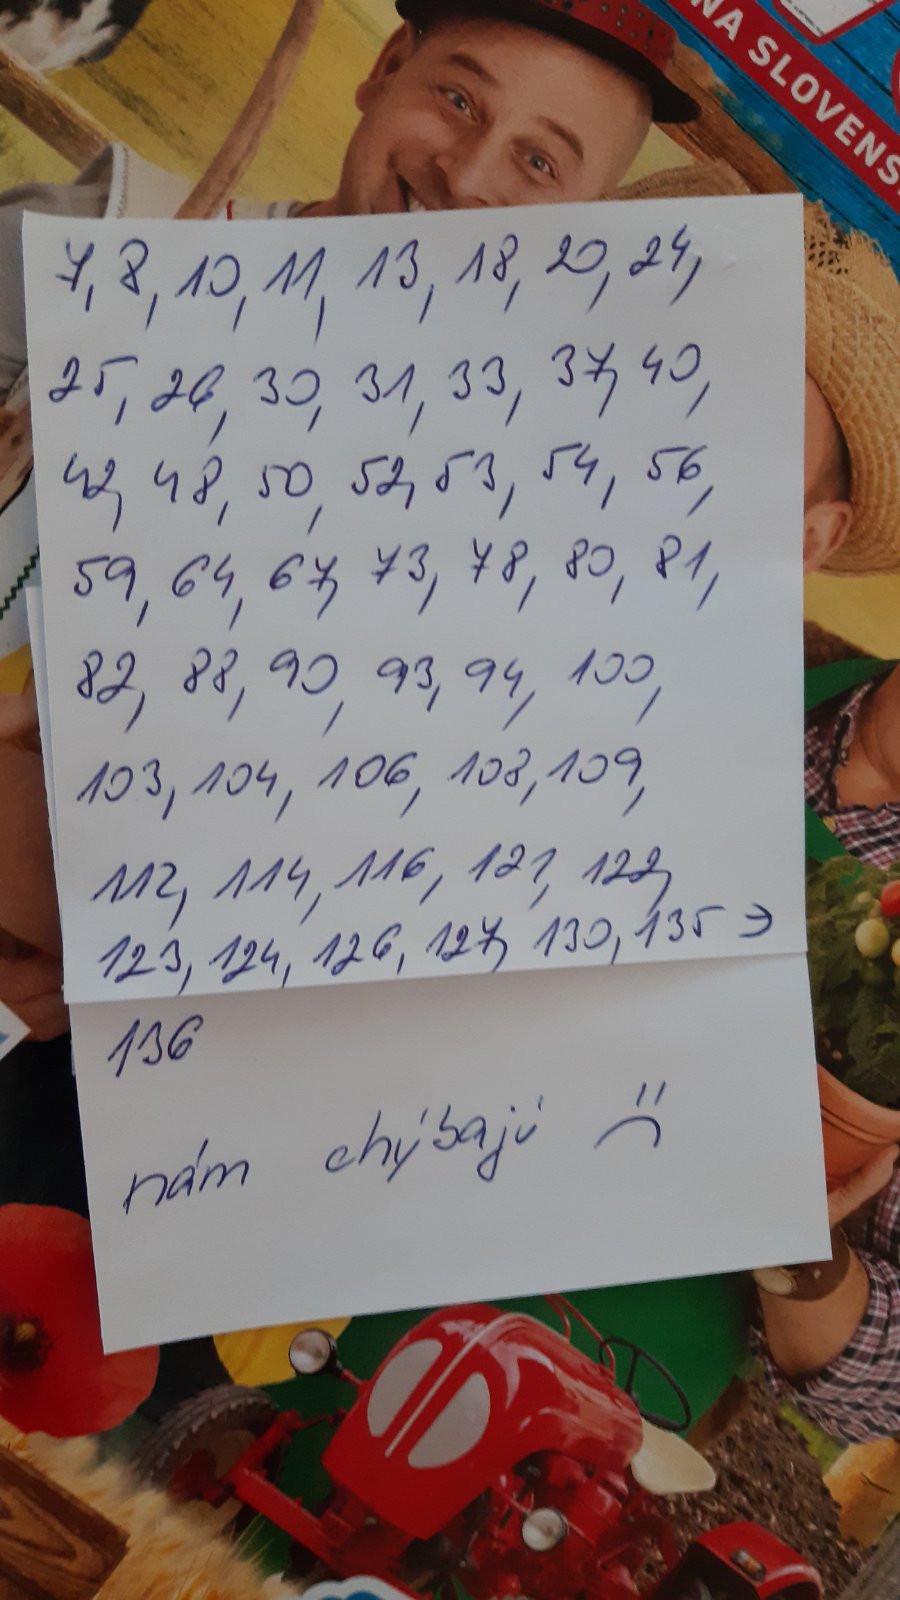 NA SLOVENS
7, 8, 10, 11, 13, 18, 20, 24,
25, 26, 30, 31, 33, 37, 40,
42, 48, 50, 52, 53, 54, 56,
59, 64, 67, 73, 78, 80, 81,
82, 88, 90, 93, 94, 100,
103, 104, 106, 108, 109,
112, 114, 116, 121, 122,
123, 124, 126, 127, 130, 135 →
136
nám chýbajú :(